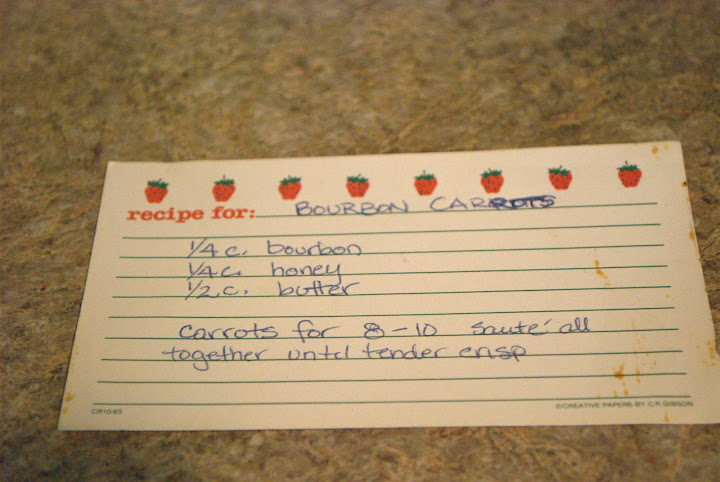 recipe for: BOURBON CARROTS
1/4 c. bourbon
1/4 c. honey
1/2 c. butter
Carrots for 8-10 Sauté all
together until tender crisp
CR10-65 ©CREATIVE PAPERS BY C.R. GIBSON